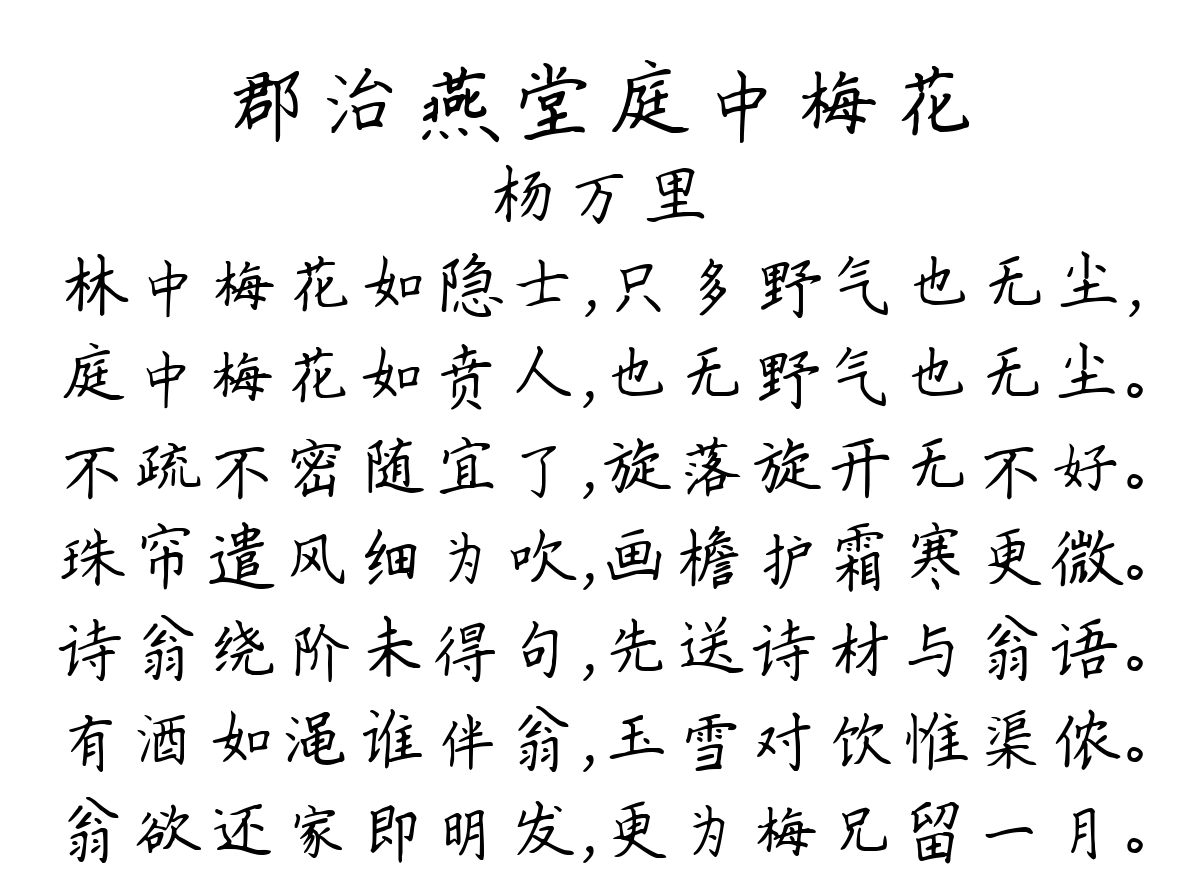 郡治燕堂庭中梅花
杨万里
林中梅花如隐士,只多野气也无尘,
庭中梅花如贲人,也无野气也无尘。
不疏不密随宜了,旋落旋开无不好。
珠帘遣风细为吹,画檐护霜寒更微。
诗翁绕阶未得句,先送诗材与翁语。
有酒如渑谁伴翁,玉雪对饮惟渠侬。
翁欲还家即明发,更为梅兄留一月。